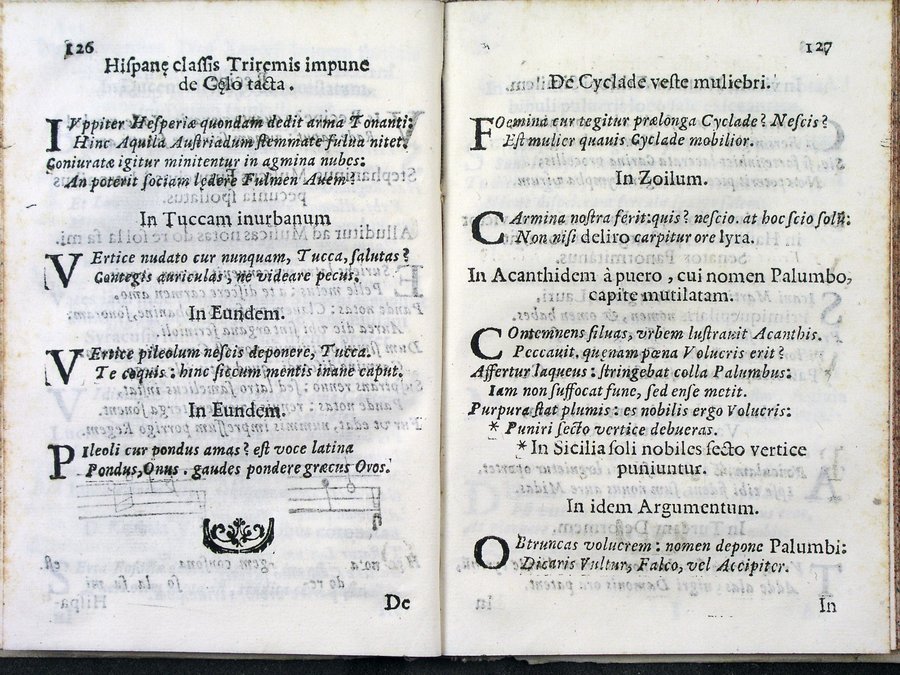 126
Hispanę classis Triremis impune
de Cęlo tacta.
IVppiter Hesperiæ quondam dedit arma Tonanti:
Hinc Aquila Austriadum stemmate fulua nitet.
Coniuratæ igitur minitentur in agmina nubes:
An poterit sociam lędere Fulmen Auem?
In Tuccam inurbanum
VErtice nudato cur nunquam, Tucca, salutas?
Contegis auriculas, ne videare pecus.
In Eundem.
VErtice pileolum nescis deponere, Tucca.
Te coquis: hinc siccum mentis inane caput.
In Eundem.
PIleoli cur pondus amas? est voce latina
Pondus, Onus. gaudes pondere græcus Ovos.
De
127
De Cyclade veste muliebri.
FOemina cur tegitur prælonga Cyclade? Nescis?
Est mulier quauis Cyclade mobilior.
In Zoilum.
CArmina nostra ferit: quis? nescio. at hoc scio solũ:
Non nisi deliro carpitur ore lyra.
In Acanthidem à puero, cui nomen Palumbo,
capite mutilatam.
COntemnens siluas, vrbem lustrauit Acanthis.
Peccauit. quenam pœna Volucris erit?
Affertur laqueus: stringebat colla Palumbus:
Iam non suffocat fune, sed ense metit.
Purpura stat plumis: es nobilis ergo Volucris:
* Puniri secto vertice debueras.
* In Sicilia soli nobiles secto vertice
puniuntur.
In idem Argumentum.
OBtruncas volucrem: nomen depone Palumbi:
Dicaris Vultur, Falco, vel Accipiter.
In